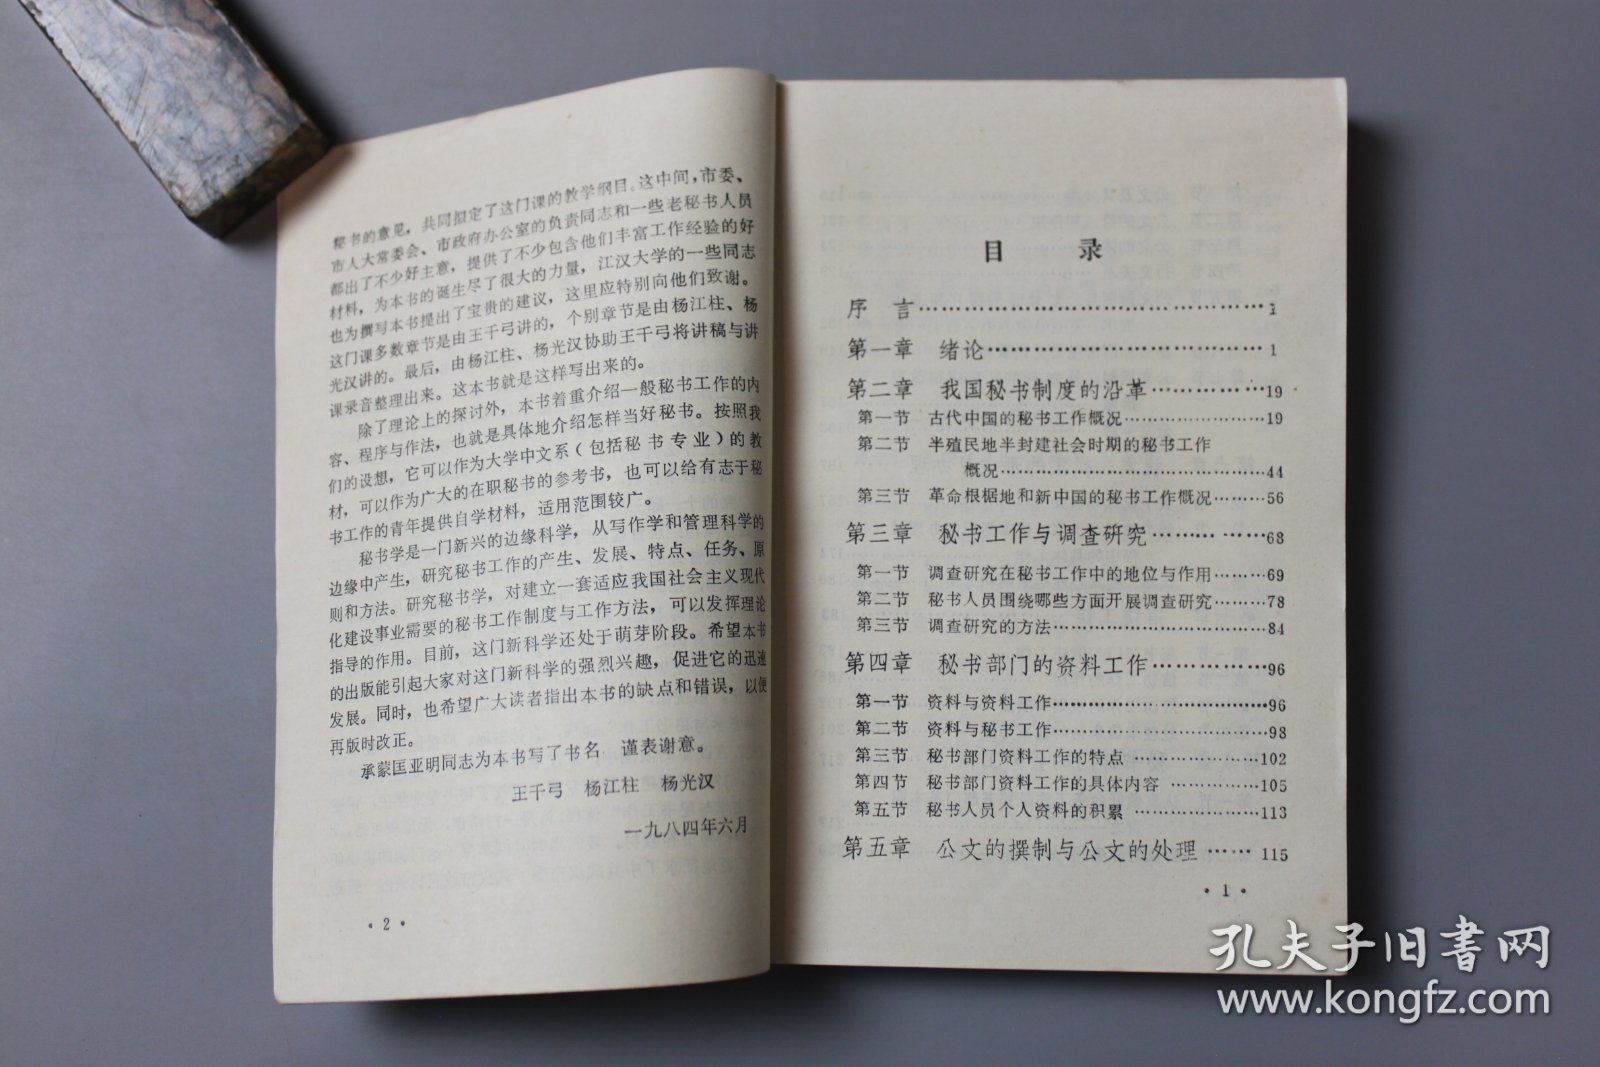 秘书的意见，共同拟定了这门课的教学纲目。这中间，市委、
市人大常委会、市政府办公室的负责同志和一些老秘书人员
都出了不少好主意，提供了不少包含他们丰富工作经验的好
材料，为本书的诞生尽了很大的力量，江汉大学的一些同志
也为撰写本书提出了宝贵的建议，这里应特别向他们致谢。
这门课多数章节是由王千弓讲的，个别章节是由杨江柱、杨
光汉讲的。最后，由杨江柱、杨光汉协助王千弓将讲稿与讲
课录音整理出来。这本书就是这样写出来的。
除了理论上的探讨外，本书着重介绍一般秘书工作的内
容、程序与作法，也就是具体地介绍怎样当好秘书。按照我
们的设想，它可以作为大学中文系（包括秘书专业）的教
材，可以作为广大的在职秘书的参考书，也可以给有志于秘
书工作的青年提供自学材料，适用范围较广。
秘书学是一门新兴的边缘科学，从写作学和管理科学的
边缘中产生，研究秘书工作的产生、发展、特点、任务、原
则和方法。研究秘书学，对建立一套适应我国社会主义现代
化建设事业需要的秘书工作制度与工作方法，可以发挥理论
指导的作用。目前，这门新科学还处于萌芽阶段。希望本书
的出版能引起大家对这门新科学的强烈兴趣，促进它的迅速
发展。同时，也希望广大读者指出本书的缺点和错误，以便
再版时改正。
承蒙匡亚明同志为本书写了书名　谨表谢意。
王千弓　杨江柱　杨光汉
一九八四年六月
·2·
目　录
序　言……………………………………1
第一章　绪论……………………………1
第二章　我国秘书制度的沿革……………19
第一节　古代中国的秘书工作概况……………19
第二节　半殖民地半封建社会时期的秘书工作
概况……………………………44
第三节　革命根据地和新中国的秘书工作概况………56
第三章　秘书工作与调查研究……………68
第一节　调查研究在秘书工作中的地位与作用………69
第二节　秘书人员围绕哪些方面开展调查研究………78
第三节　调查研究的方法……………………84
第四章　秘书部门的资料工作……………96
第一节　资料与资料工作……………………96
第二节　资料与秘书工作……………………98
第三节　秘书部门资料工作的特点……………102
第四节　秘书部门资料工作的具体内容……………105
第五节　秘书人员个人资料的积累……………113
第五章　公文的撰制与公文的处理……115
·1·
孔夫子旧书网
www.kongfz.com